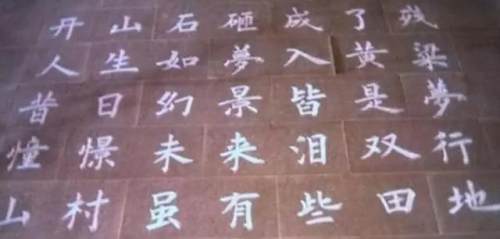 开山石砸成了残
人生如夢入黄梁
昔日幻景皆是夢
憧憬未来泪双行
山村虽有些田地